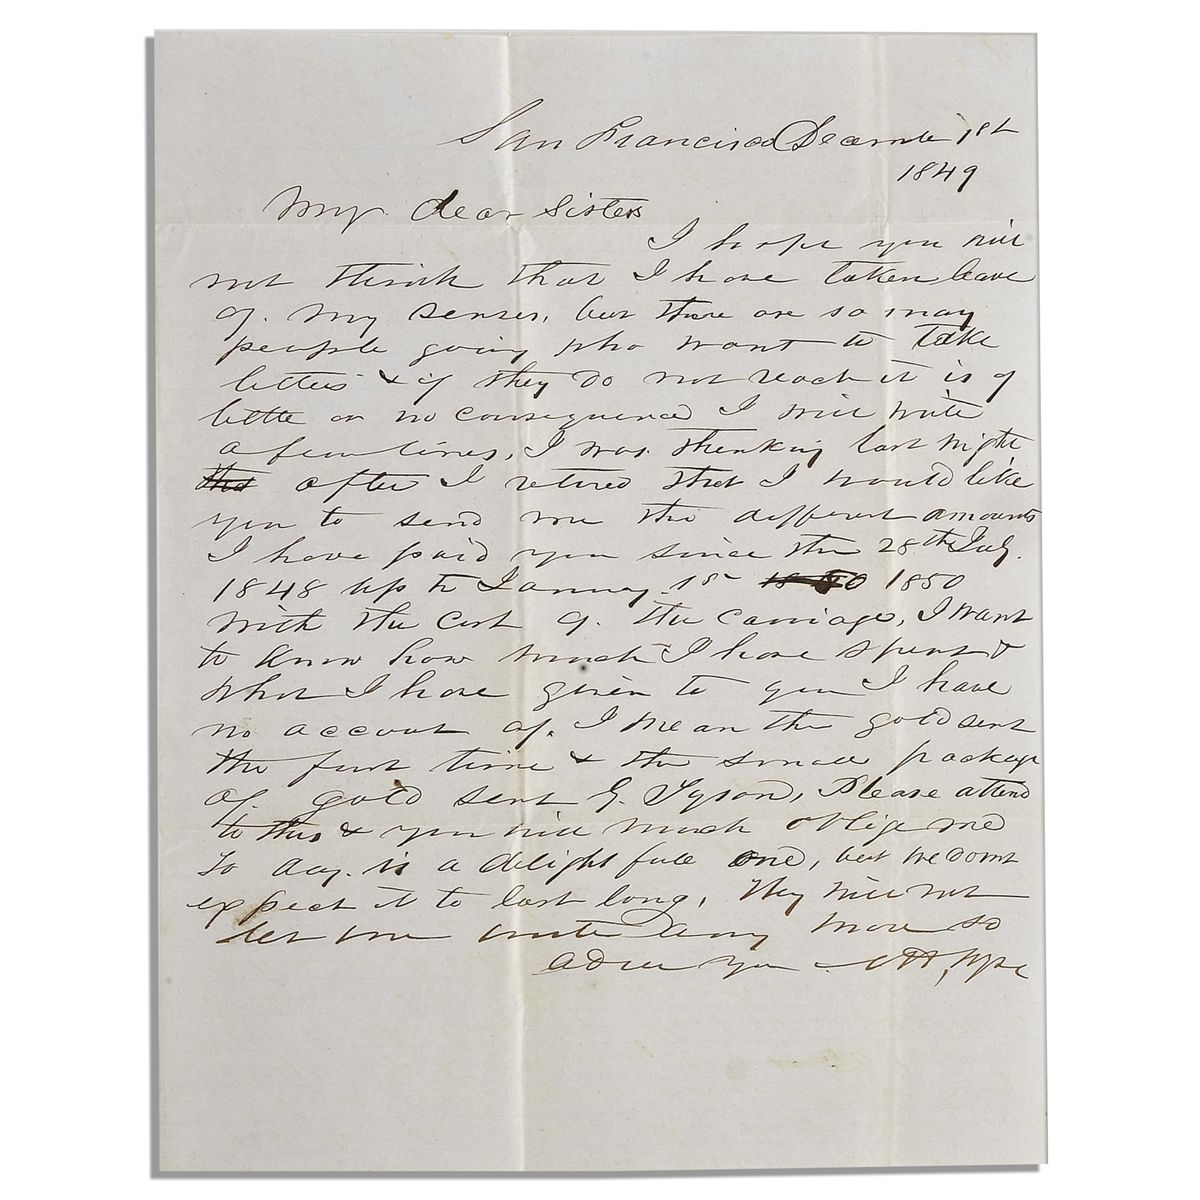 San Francisco December 1st
1849
My dear Sisters
I hope you will
not think that I have taken leave
of my senses, but there are so many
people going who want to take
letters & if they do not reach it is of
little or no consequence I will write
a few lines, I was thinking last night
that after I retired that I would like
you to send me the different amounts
I have paid you since the 28th July
1848 up to January 1st 1850 1850
with the cost of the carriage, I want
to know how much I have spent &
what I have given to you I have
no account of. I mean the gold sent
the first time & the small package
of gold sent G. Tyson, Please attend
to this & you will much oblige me
To day is a delightfull one, but we dont
expect it to last long, They will not
let me write any more so
adieu